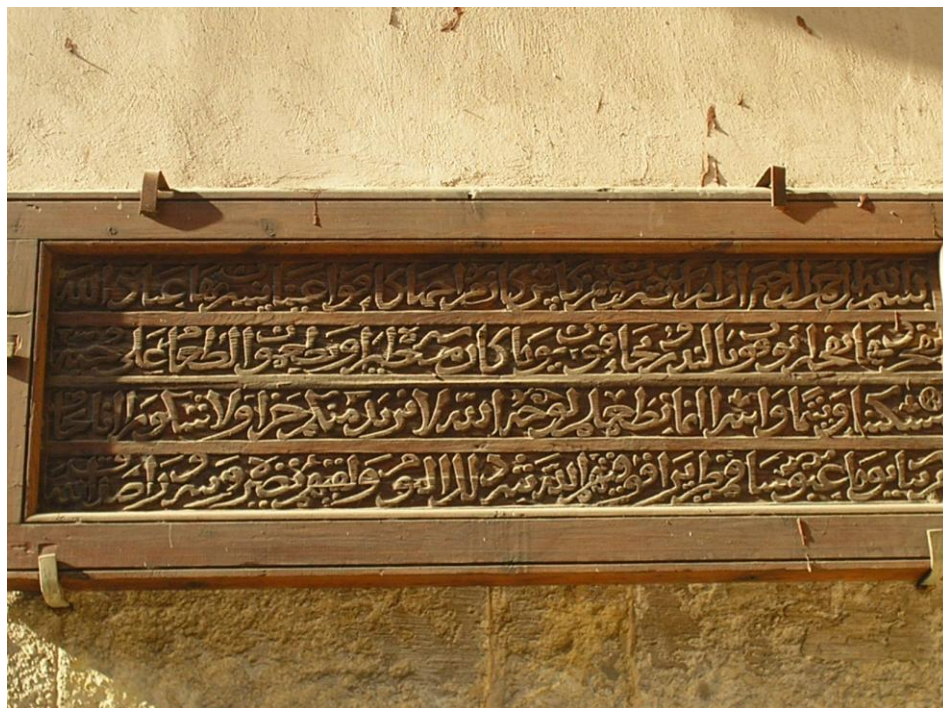 بسم الله الرحمن الرحيم ان الابرار يشربون من كاس كان مزاجها كافورا عينا يشرب بها عباد الله
يفجرونها تفجيرا يوفون بالنذر ويخافون يوما كان شره مستطيرا ويطعمون الطعام على حبه
مسكينا ويتيما واسيرا انما نطعمكم لوجه الله لا نريد منكم جزاء ولا شكورا انا نخاف
من ربنا يوما عبوسا قمطريرا فوقيهم الله شر ذلك اليوم ولقيهم نضرة وسرورا